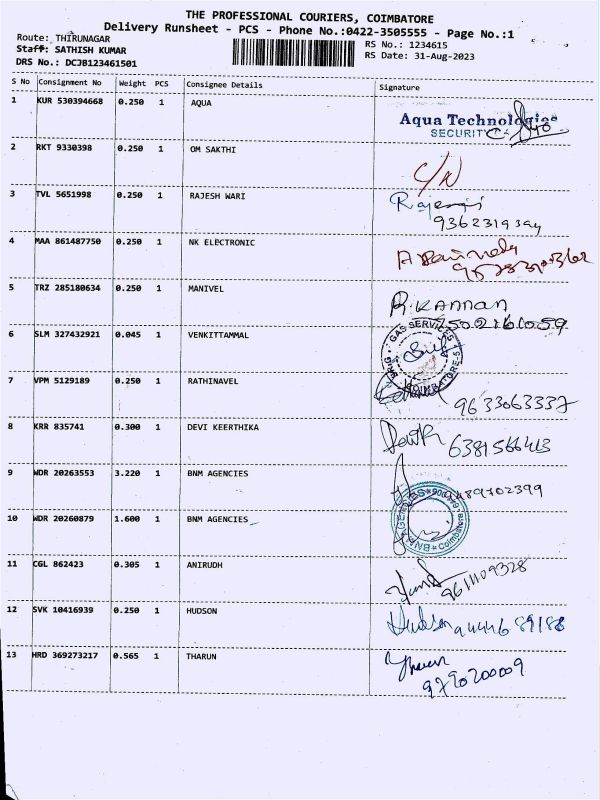 THE PROFESSIONAL COURIERS, COIMBATORE
Delivery Runsheet - PCS - Phone No.:0422-3505555 - Page No.:1
Route: THIRUNAGAR
RS No.: 1234615
Staff: SATHISH KUMAR
RS Date: 31-Aug-2023
DRS No.: DCJB123461501
S No Consignment No Weight PCS Consignee Details Signature
1 KUR 530394668 0.250 1 AQUA
Aqua Technologies
SECURITY
2 RKT 9330398 0.250 1 OM SAKTHI
3 TVL 5651998 0.250 1 RAJESH WARI
4 MAA 861487750 0.250 1 NK ELECTRONIC
5 TRZ 285180634 0.250 1 MANIVEL R. KANNAN
6 SLM 327432921 0.045 1 VENKITTAMMAL
GAS SERVICES COIMBATORE-5
7 VPM 5129189 0.250 1 RATHINAVEL
9633063337
8 KRR 835741 0.300 1 DEVI KEERTHIKA
6381566413
9 WDR 20263553 3.220 1 BNM AGENCIES
9489702399
10 WDR 20260879 1.600 1 BNM AGENCIES
BNM AGENCIES Coimbatore
11 CGL 862423 0.305 1 ANIRUDH
9611109328
12 SVK 10416939 0.250 1 HUDSON
Hudson 9444689188
13 HRD 369273217 0.565 1 THARUN
Tharun
9790200009